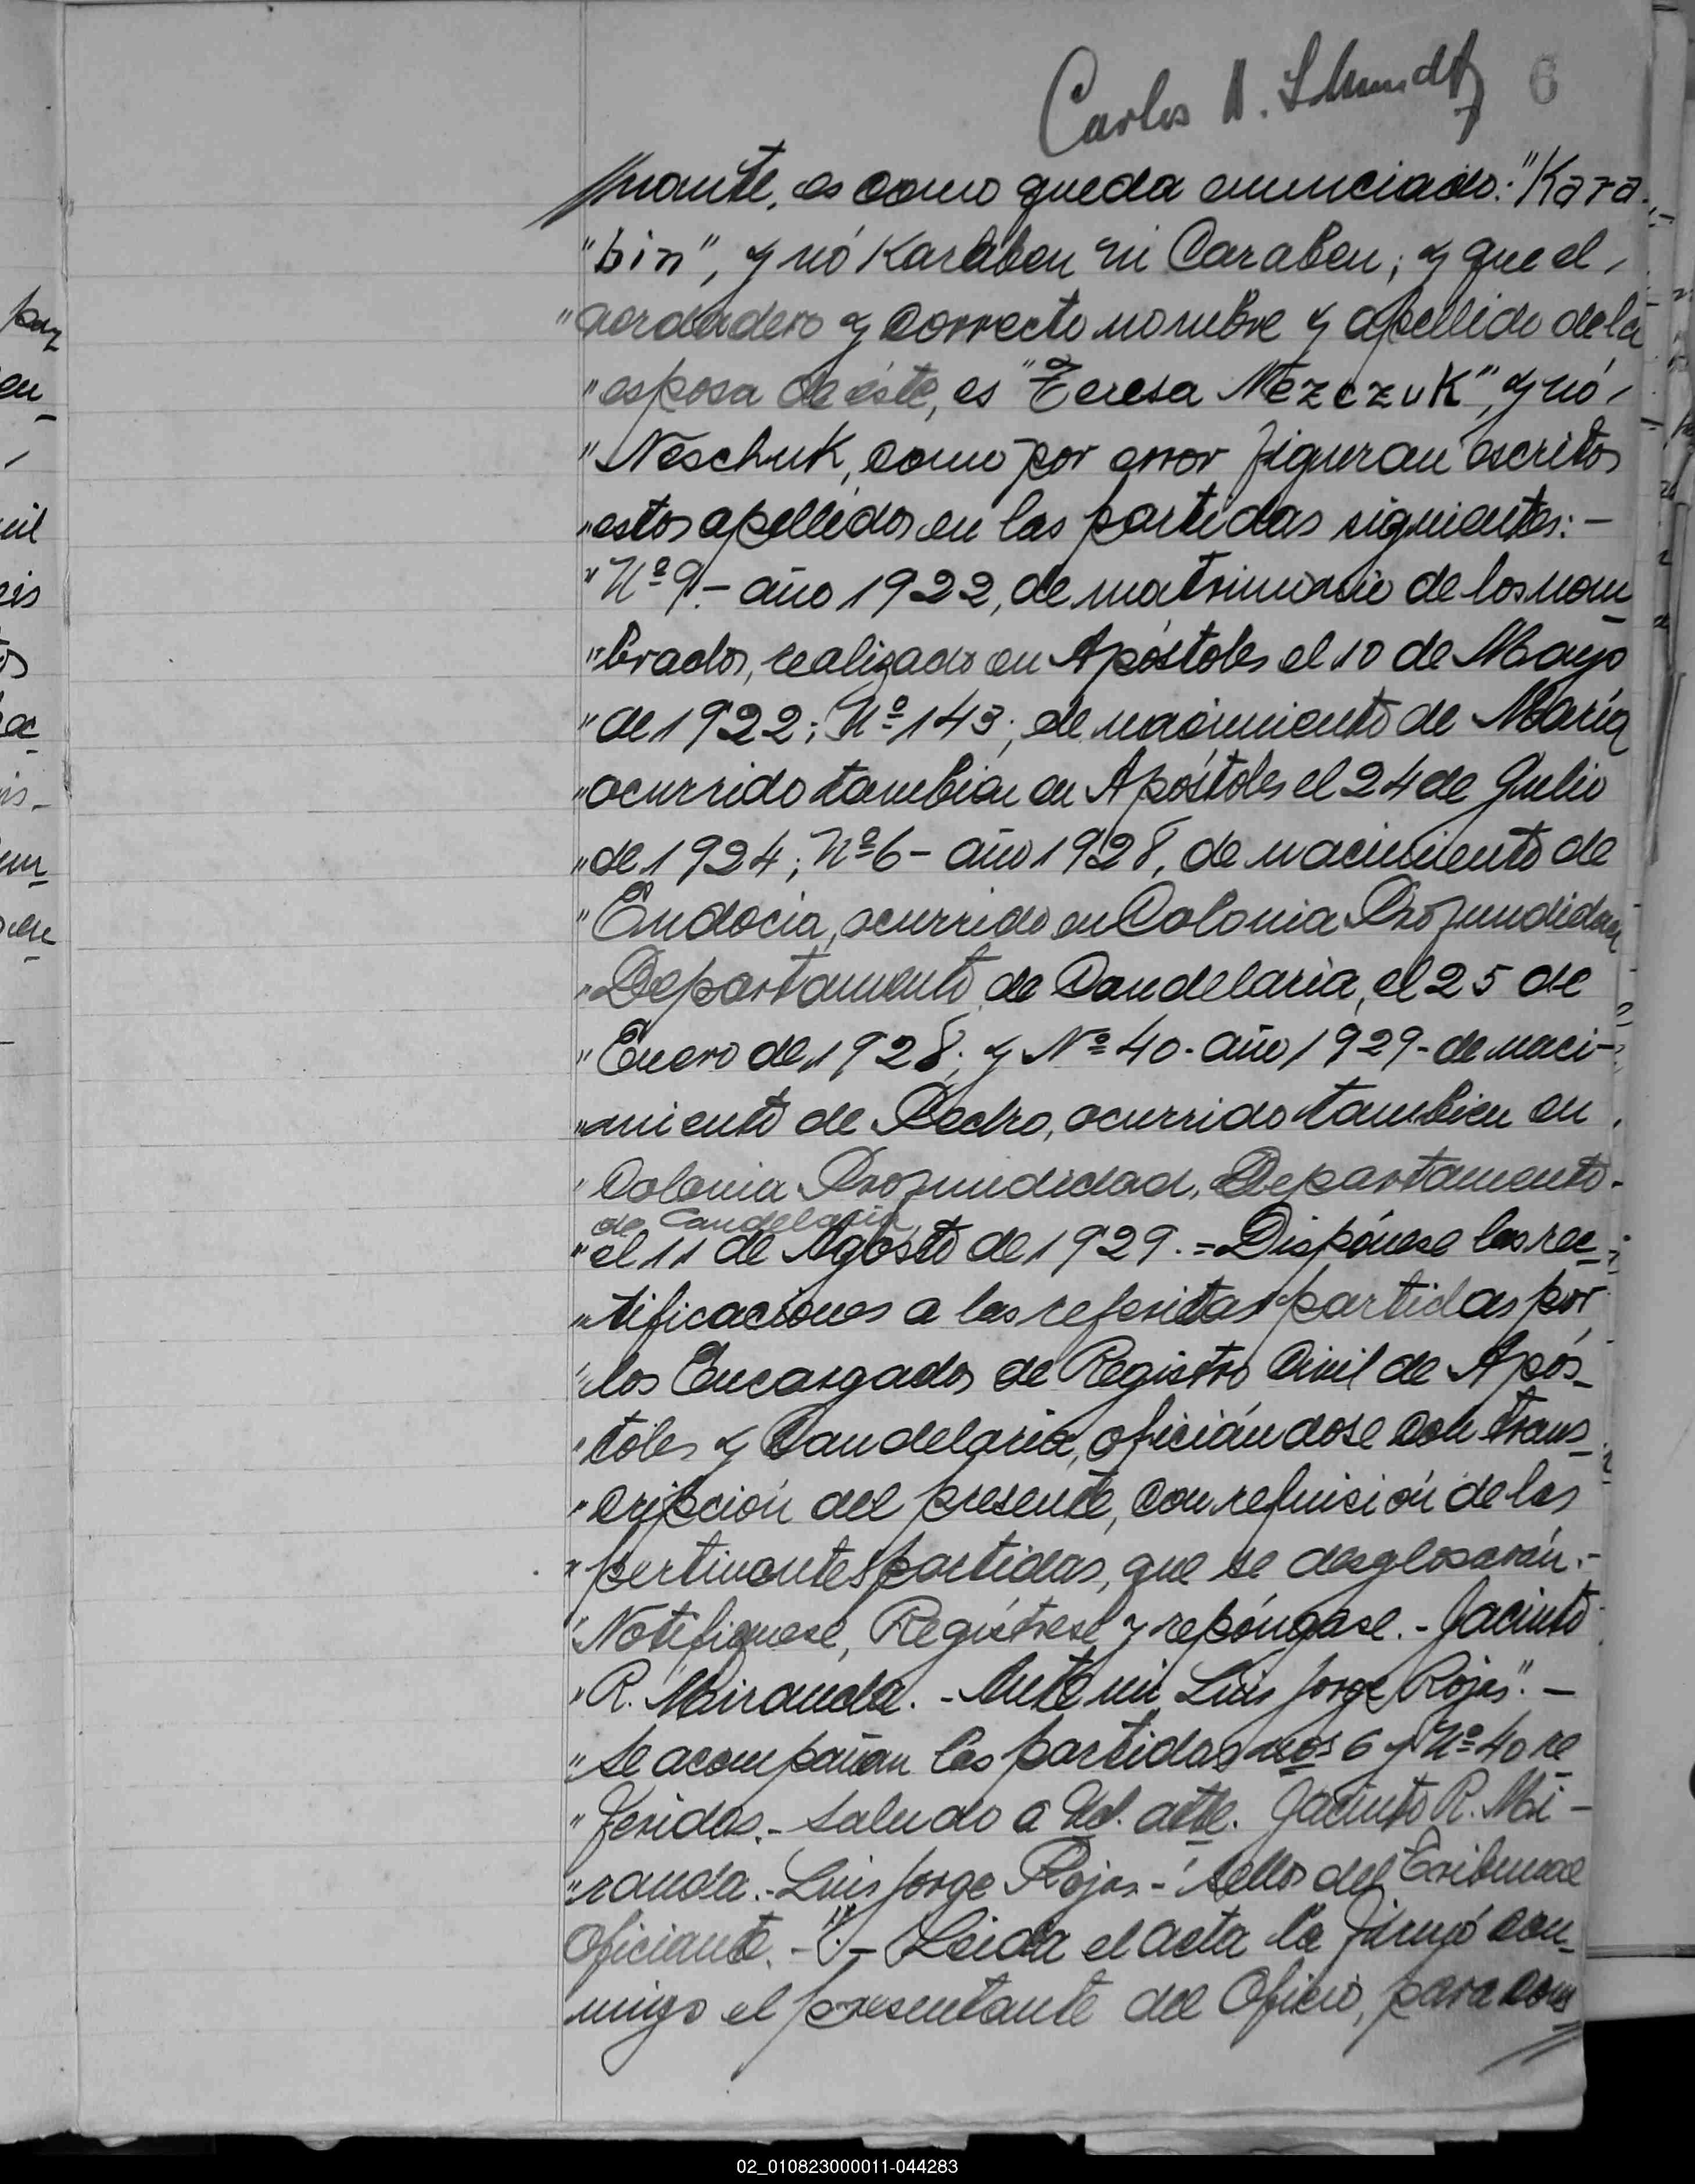 Carlos A. Shmidt 6
//nante, es como queda enunciado: "Kara-
"bin", y nó Karaben ni Caraben; y que el
"verdadero y correcto nombre y apellido de la
"esposa de éste, es "Teresa Nezczuk", y nó
"Neschuk, como por error figuran escritos
"estos apellidos en las partidas siguientes:-
"Nº 9.- año 1922, de matrimonio de los nom
"brados, realizado en Apóstoles el 10 de Mayo
"de 1922; Nº 143; de nacimiento de María
"ocurrido tambien en Apóstoles el 24 de Julio
"de 1924; Nº 6- año 1928, de nacimiento de
"Eudocia, ocurrido en Colonia Profundidad
"Departamento de Candelaria, el 25 de
"Enero de 1928; y Nº 40- año 1929- de naci-
"miento de Pedro, ocurrido tambien en
"Colonia Profundidad, Departamento-
de Candelaria
"el 11 de Agosto de 1929.=Dispónese las rec
"tificaciones a las referidas partidas por
"los Encargados de Registro Civil de Após-
"toles y Candelaria, oficiándose con trans
"cripción del presente, con remisión de las
"pertinentes partidas, que se desglosarán.-
"Notifiquese, Regístrese y repóngase.- Jacinto
"R. Miranda.- Ante mi Luis Jorge Rojas".-
"Se acompañan las partidas nos 6 y Nº 40 re
"feridas.- Saludo a Ud. atte. Jacinto R. Mi-
"randa.- Luis Jorge Rojas- Sellos del Tribunal
Oficiante.- Leida el acta la firmó con
migo el presentante del Oficio, para cons
02_010823000011-044283